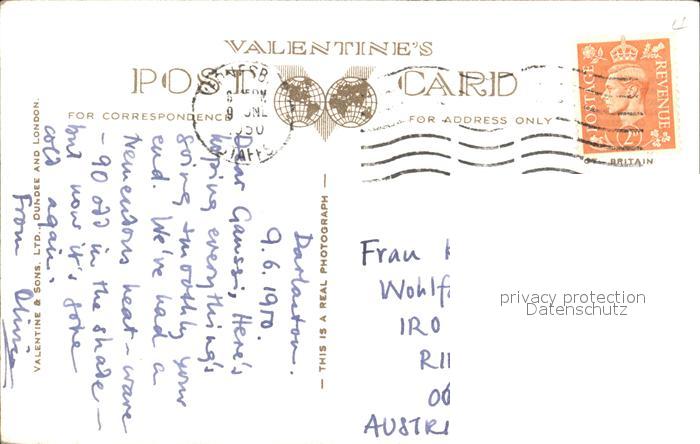 VALENTINE'S
POST CARD
FOR CORRESPONDENCE
FOR ADDRESS ONLY
JNE
1950
STAFFS
POSTAGE
REVENUE
2D
BRITAIN
VALENTINE & SONS, LTD., DUNDEE AND LONDON.
— THIS IS A REAL PHOTOGRAPH —
Darlaston.
9.6.1950.
Dear Gaussi, Here's
hoping everything's
going smoothly your
end. We've had a
tremendous heat-wave
- 90 odd in the shade -
but now it's gone
cold again.
From Olivia
Frau
Wohlf
IRO
RI
AUSTRI
privacy protection
Datenschutz